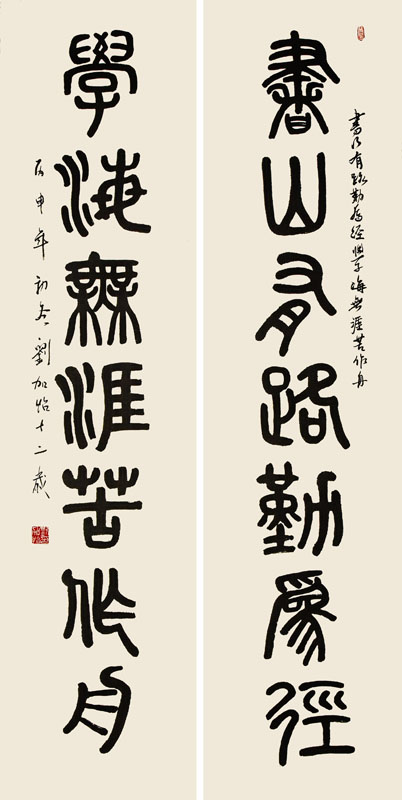 書山有路勤為徑
書乃有路勤為經學海無涯苦作舟
學海無涯苦作舟
丙申年初冬劉加怡十二歲